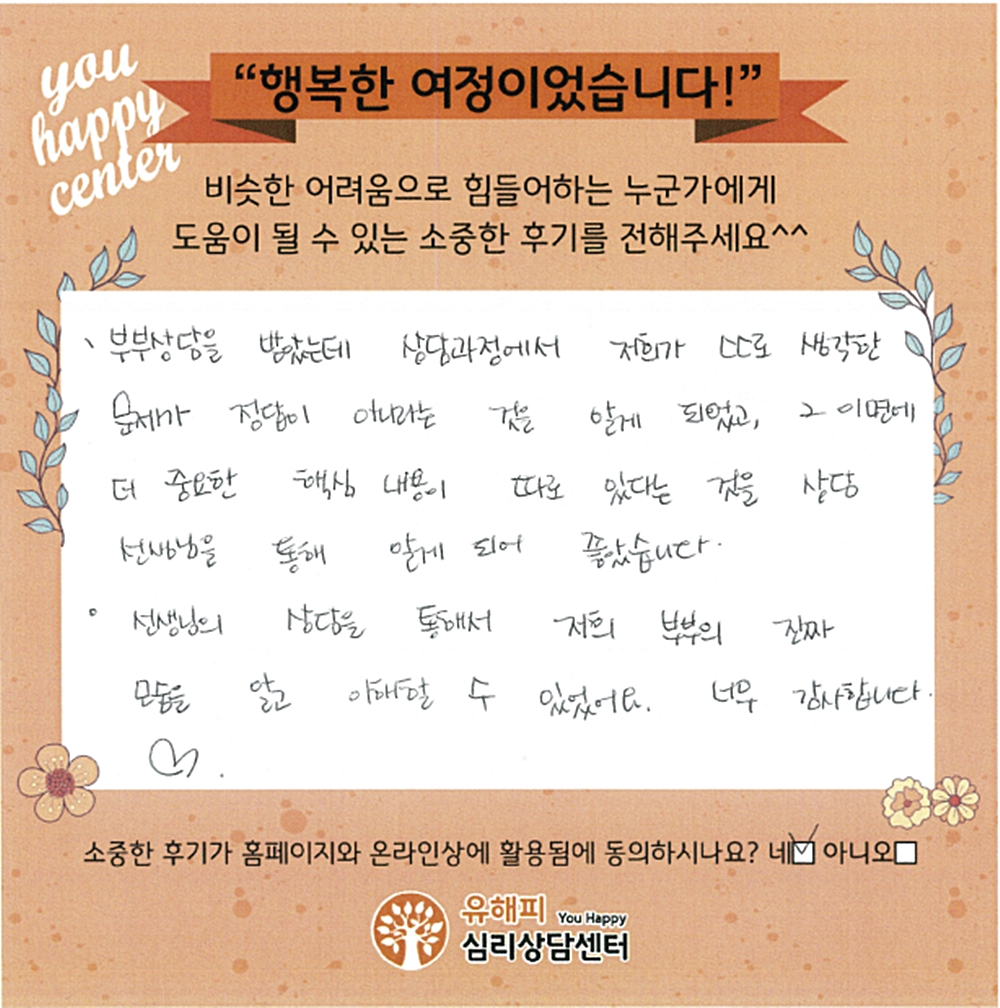 you
happy
center
“행복한 여정이었습니다!”
비슷한 어려움으로 힘들어하는 누군가에게
도움이 될 수 있는 소중한 후기를 전해주세요^^
、부부상담을 받았는데 상담과정에서 저희가 따로 생각한
문제가 정답이 아니라는 것을 알게 되었고, 그 이면에
더 중요한 핵심 내용이 따로 있다는 것을 상담
선생님을 통해 알게 되어 좋았습니다.
◦ 선생님의 상담을 통해서 저희 부부의 진짜
모습을 알고 이해할 수 있었어요. 너무 감사합니다.
♡.
소중한 후기가 홈페이지와 온라인상에 활용됨에 동의하시나요? 네☑ 아니오☐
유해피 You Happy
심리상담센터